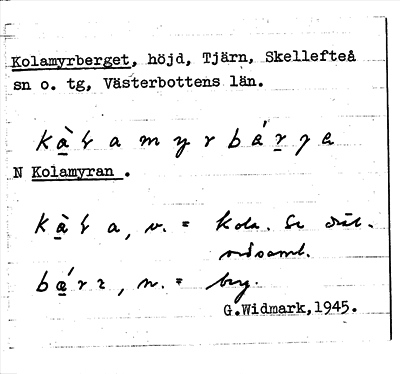 Kolamyrberget, höjd, Tjärn, Skellefteå
sn o. tg, Västerbottens län.
kàɽamyrbárɟe
N Kolamyran .
kàɽa, v. = kola. Se dial.
ordsaml.
bárɟ, n. = berg.
G.Widmark,1945.